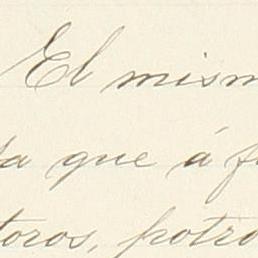 El mism
da que á f
toros, potro